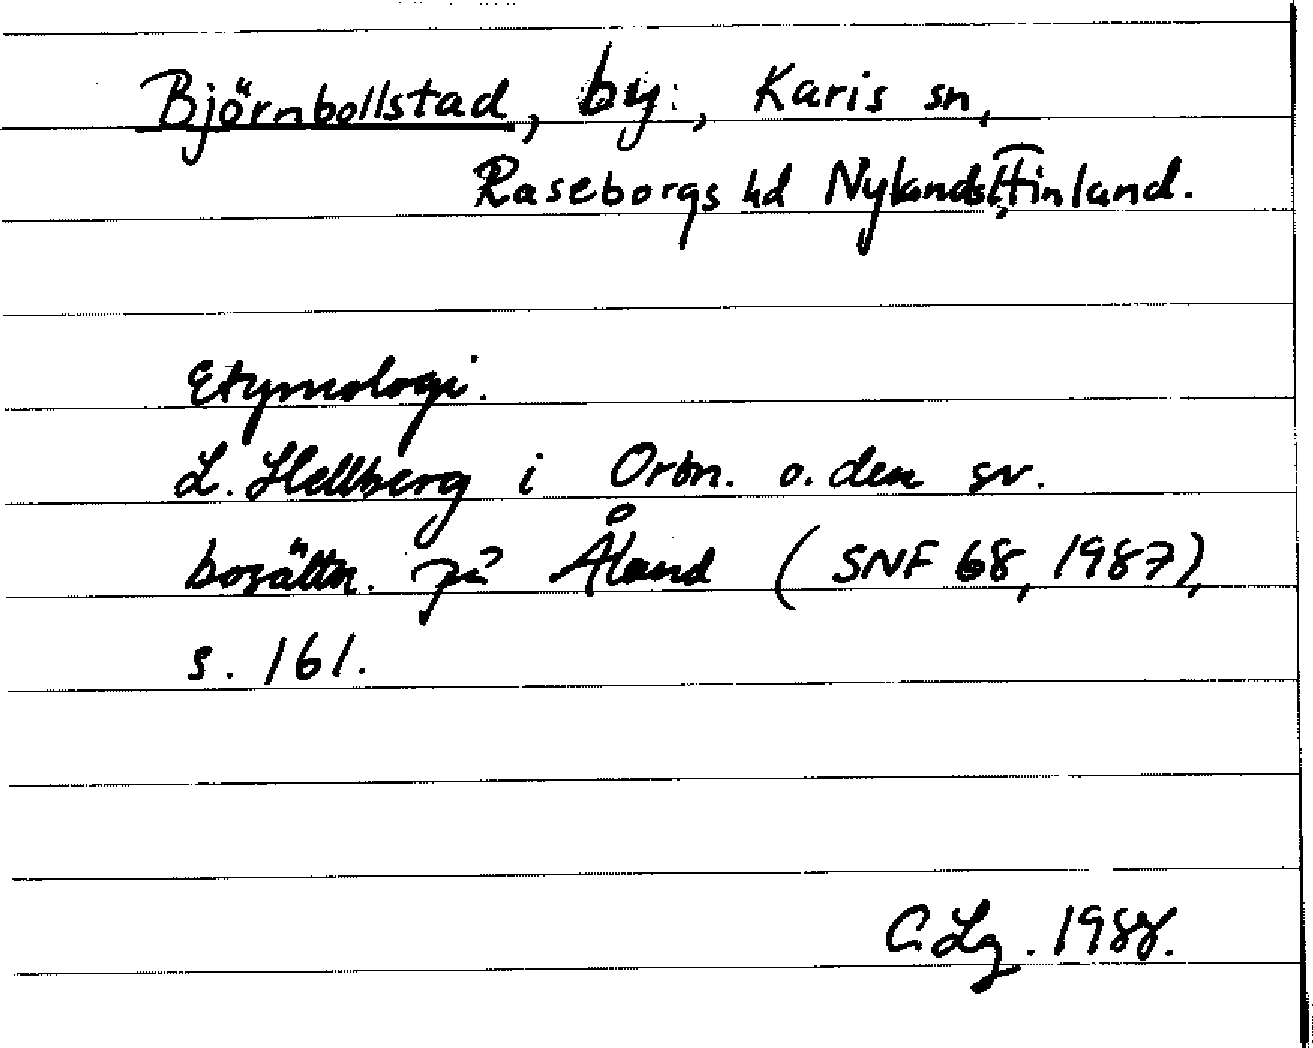 Björnbollstad, by, Karis sn,
Raseborgs hd Nylands l, Finland.
Etymologi.
L. Hellberg i Ortn. o. den sv.
bosättn. på Åland (SNF 68, 1987),
s. 161.
C. Lg. 1988.